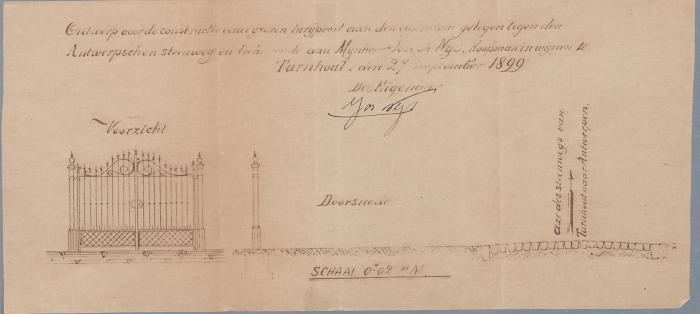 Ontwerp voor de constructie eener ijzeren inrijpoort aan den eigendom gelegen tegen den
Antwerpschen steenweg en toehoorende aan Mynheer Joseph Wijs, Koopman in wijnen te
Turnhout, den 27 September 1899
Den Eigenaar
Jos Wijs
Voorzicht
Doorsnede
Axe des steenwegs van
Turnhout naar Antwerpen.
SCHAAL 0.02 P.M.